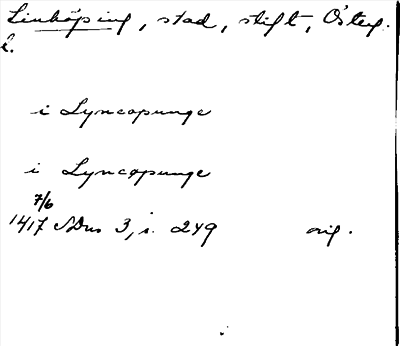 Linköping, stad, stift, Österg.
l.
i Lyncopunge
i Lyncopunge
7/6
1417 SDns 3, s. 249 orig.